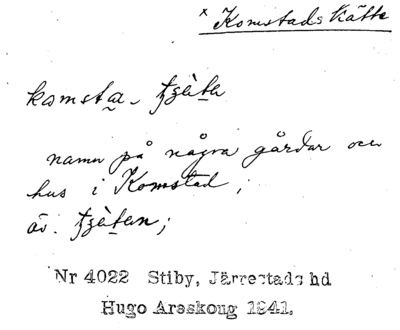 × Komstads Kätte
komsta - tʒèta
namn på några gårdar och
hus i Komstad;
äv. tʒètan;
Nr 4022 Stiby, Järrestads hd
Hugo Areskoug 1941.